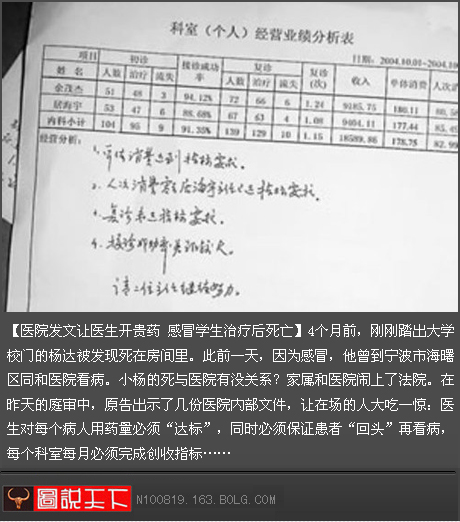 科室（个人）经营业绩分析表
日期：2004.10.01-2004.10
项目 初诊 接诊成功率 复诊 复诊(次) 收入 单体消费 人次消
姓名 人数 治疗 流失 人数 治疗 流失
余茂杰 51 48 3 94.12% 72 66 6 1.24 9185.75 180.11 80.58
居海宇 53 47 6 88.68% 67 63 4 1.08 9404.11 177.44 85.49
内科小计 104 95 9 91.35% 139 129 10 1.15 18589.86 178.75 82.99
经营分析：
1. 单体消费达到指标要求。
2. 人次消费 居海宇 达指标要求。
3. 复诊未达指标要求。
4. 接诊成功率
请二位主任继续努力。
【医院发文让医生开贵药 感冒学生治疗后死亡】4个月前，刚刚踏出大学
校门的杨达被发现死在房间里。此前一天，因为感冒，他曾到宁波市海曙
区同和医院看病。小杨的死与医院有没关系？家属和医院闹上了法院。在
昨天的庭审中，原告出示了几份医院内部文件，让在场的人大吃一惊：医
生对每个病人用药量必须“达标”，同时必须保证患者“回头”再看病，
每个科室每月必须完成创收指标……
圖說天下 N100819.163.BOLG.COM